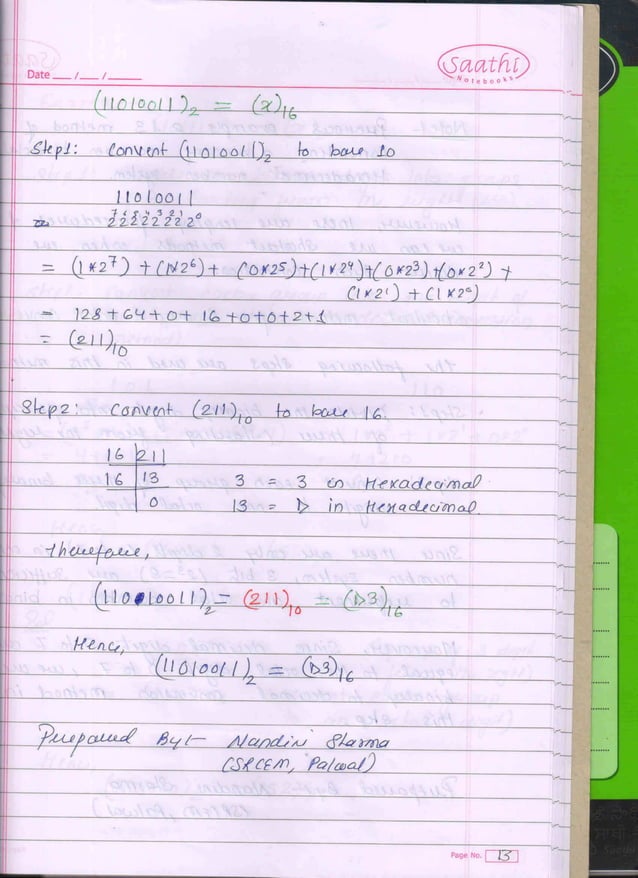 Date __ / __ / ____
Saathi
Notebooks
(11010011)₂ = (x)₁₆
Step1: Convent (11010011)₂ to base 10
11010011
2⁷2⁶2⁵2⁴2³2²2¹2⁰
= (1×2⁷) + (1×2⁶) + (0×2⁵)+(1×2⁴)+(0×2³)+(0×2²) +
(1×2¹) + (1×2⁰)
= 128+64+0+16+0+0+2+1
= (211)₁₀
Step2: Convent (211)₁₀ to base 16.
16 211
16 13 3 = 3 in Hexadecimal
0 13 = D in Hexadecimal.
Therefore,
(11010011)₂ = (211)₁₀ = (D3)₁₆
Hence,
(11010011)₂ = (D3)₁₆
Prepared By:- Nandini Sharma
(SRCEM, Palwal)
Page No. 13